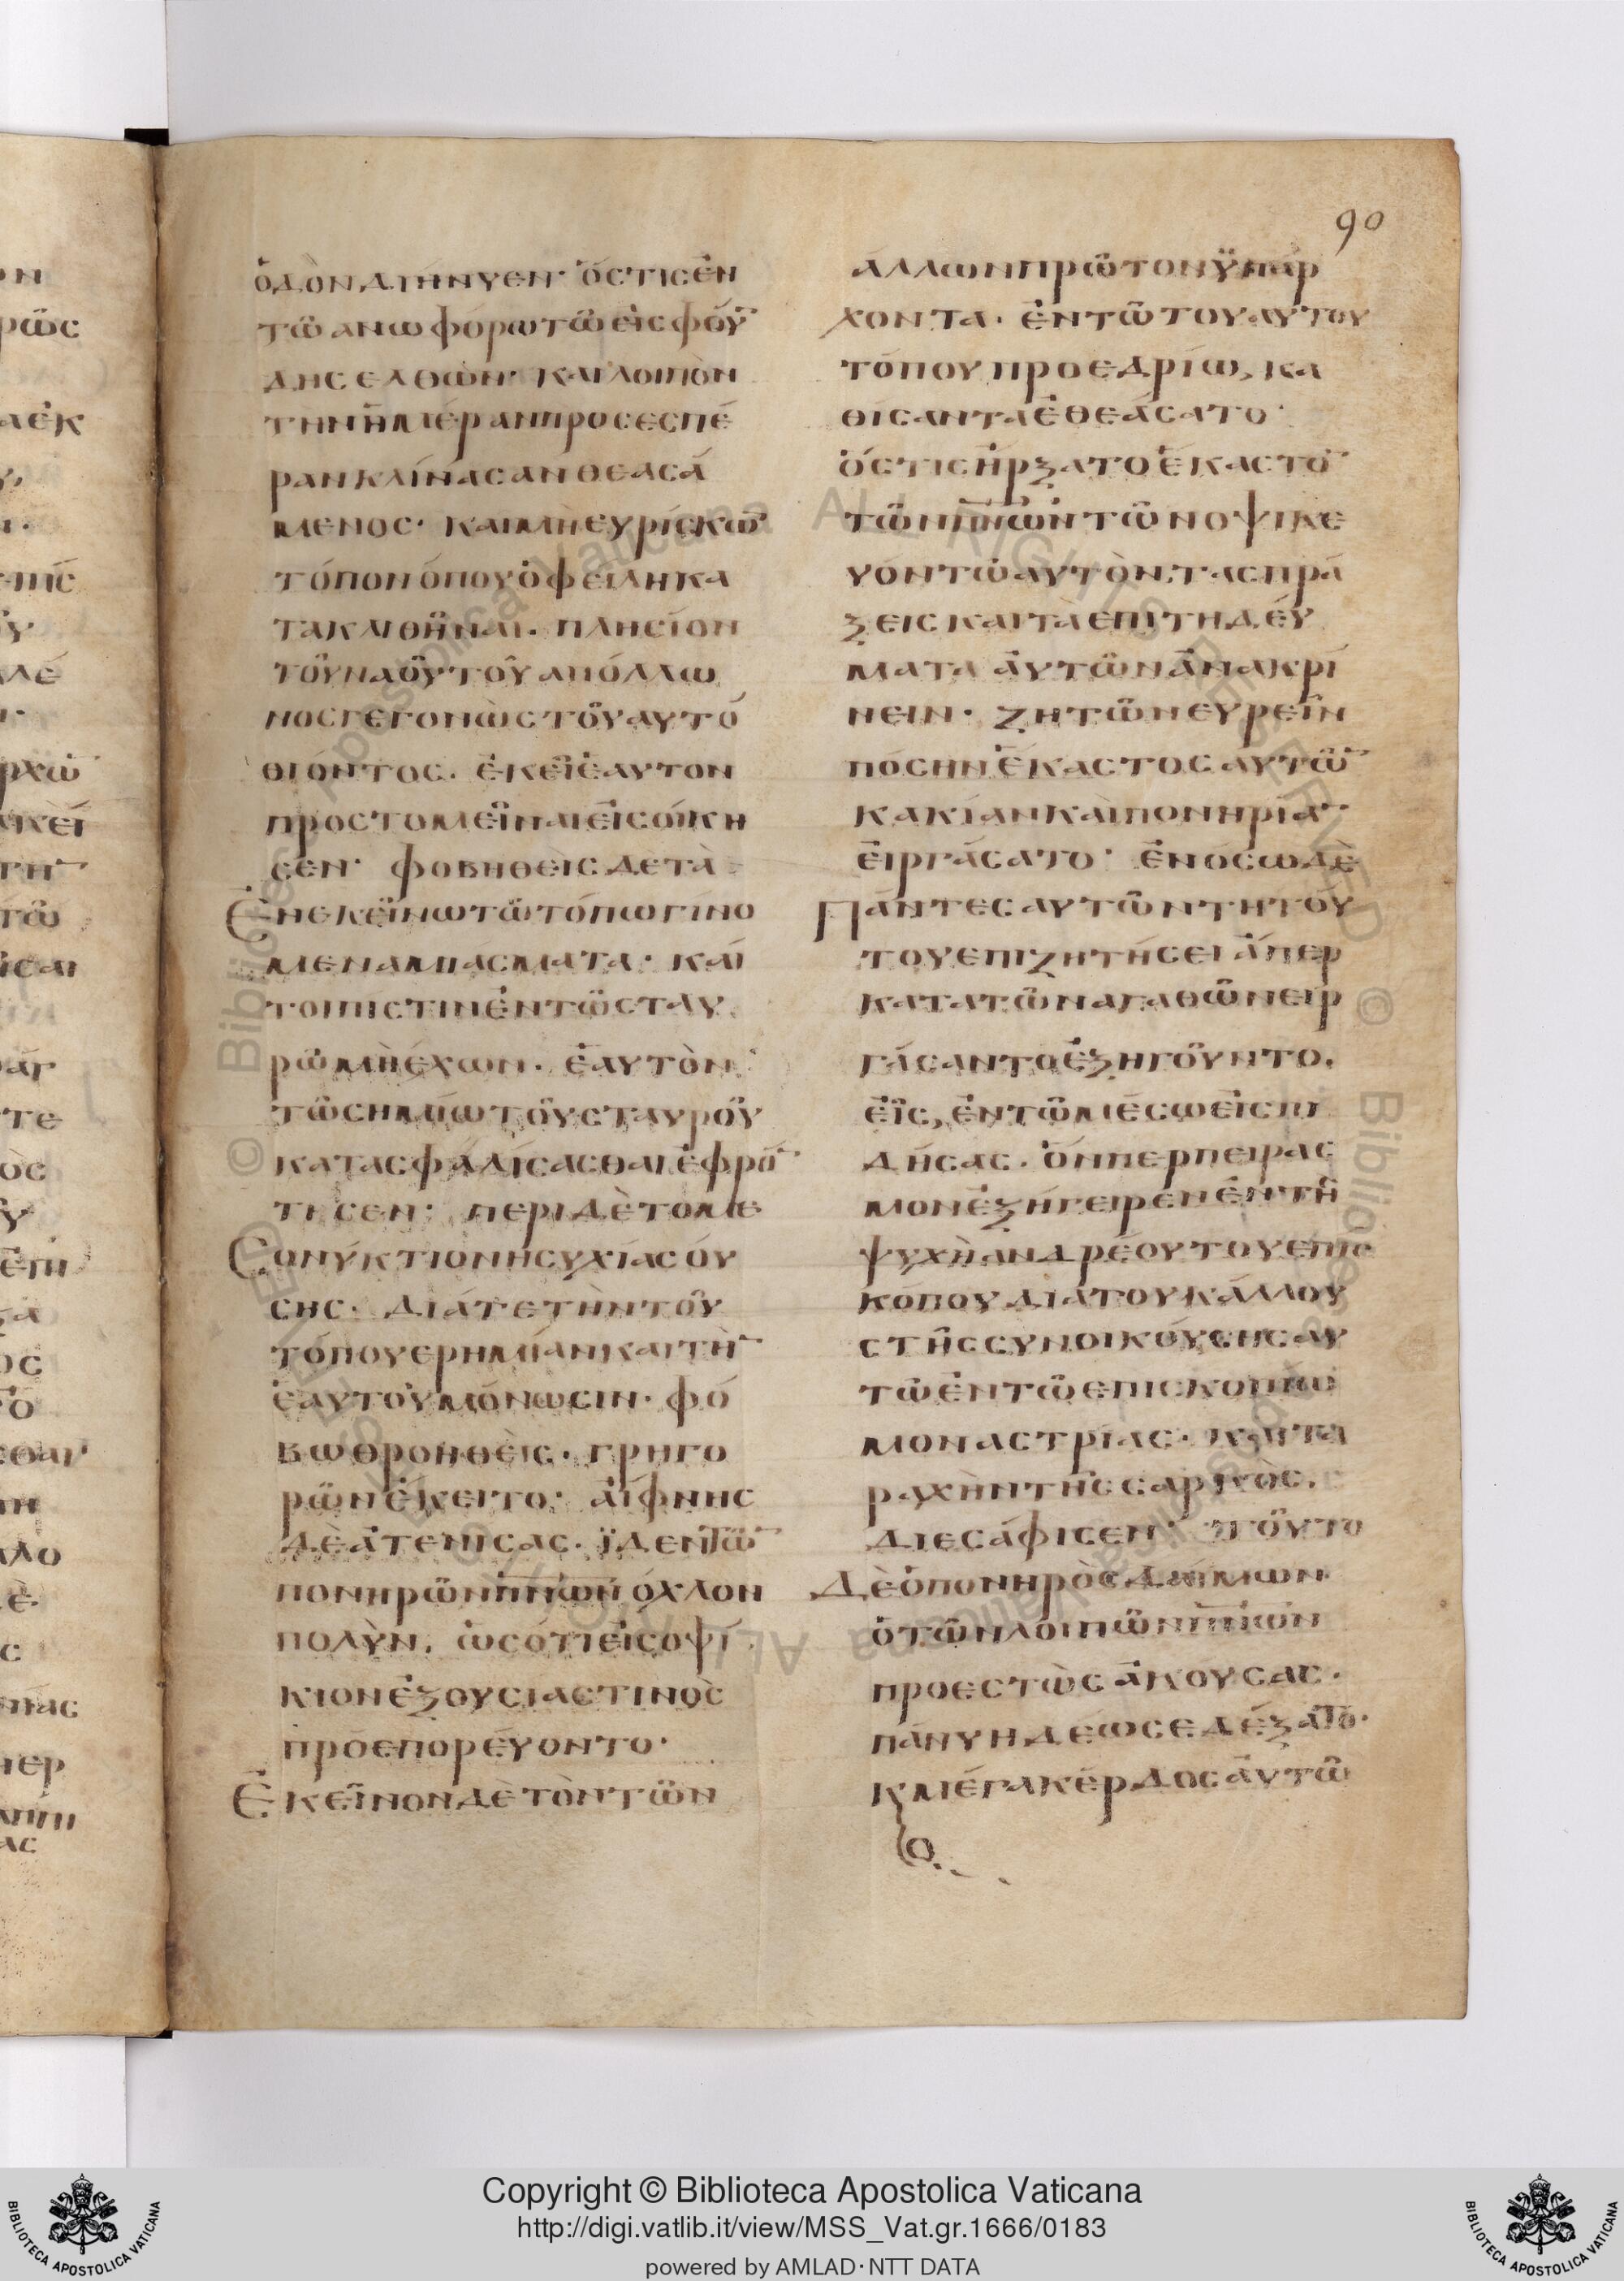 90
ὁδὸν διήνυεν· ὅστις ἐν
τῶ ἀνωφόρω τῶ εἰς φού̅
δης ἐλθὼν· καὶ λοιπὸν
τὴν ἡμέραν προς ἑσπέ
ραν κλίνασαν θεασά
μενος· καὶ μὴ εὑρίσκω̅
τόπον ὅπου ὀφείλη κα
τακλιθῆναι· πλησίον
τοῦ ναοῦ τοῦ ἀπόλλω
νος γεγονὼς τοῦ αυτό
θι ὄντος· ἐκεῖ ἑαυτον
προς το μεῖναι εἰσῴκη
σεν· φοβηθεὶς δε τὰ
Ἐν εκεῖνω τῶ τόπω γινο
μενα μιάσματα· καί
τοι πίστιν ἐν τῶ σταυ
ρῶ μὴ ἔχων· ἑαυτὸν
τῶ σημείω τοῦ σταυροῦ
κατασφαλίσασθαι ἐφρό̅
τισεν· περι δὲ το με
Σονύκτιον ἡσυχίας οὔ
σης· διά τε τὴν τοῦ
τόπου ερημίαν και τὴ̅
ἑαυτοῦ μόνωσιν· φό
βω θροηθεὶς· γρηγο
ρῶν ἔκειτο· αἴφνης
δὲ ἀτενίσας· ϊδεν τῶ̅
πονηρῶν π̅ν̅ω̅ν̅ ὄχλον
πολὺν, ὡς ὅτι εἰς οψί
κιον ἐξουσίας τινὸς
προεπορεύοντο·
Ἐκεῖνον δὲ τὸν τῶν
ἄλλων πρῶτον ὑπάρ
χοντα· ἐν τῶ του αυτου
τόπου προεδρίω, κα
θίσαντα ἐθεάσατο·
ὅστις ἤρξατο ἑκαστο̅
τῶν π̅ν̅ω̅ν̅ τῶν οψικε
υόντω αυτὸν, τας πρά
ξεις και τα επιτηδεύ
ματα ἀυτῶν ἀνακρί
νειν· ζητῶν ευρεῖν
πόσην ἕκαστος αυτῶ̅
κακίαν καὶ πονηρία̅
εἰργάσατο· ἐν ὅσω δὲ
Πάντες αυτῶν τῆ τού
του επιζητήσει ἅπερ
κατα τῶν αγαθῶν ειρ
γάσαντο ἐξηγοῦντο.
εἷς, ἐν τῶ μέσω εἰσπι
δήσας· ὅνπερ πειρας
μον ἐξήγειρεν ἐν τῆ
ψυχῆ ανδρέου του επισ
κόπου δια του κάλλου
ς τῆς συνοικούσης αυ
τῶ ἐν τῶ επισκοπίω
μοναστρίας· και τα
ραχὴν τῆς σαρκὸς,
διεσάφισεν· τοῦτο
Δὲ ὁ πονηρὸς δαίμων
ὁ τῶν λοιπῶν π̅ν̅ω̅ν̅
προεστὼς ἀκούσας·
πάνυ ηδέως εδέξατο·
κ μέγα κέρδος ἀυτῶ
Copyright © Biblioteca Apostolica Vaticana
http://digi.vatlib.it/view/MSS_Vat.gr.1666/0183
powered by AMLAD·NTT DATA
BIBLIOTECA APOSTOLICA VATICANA
BIBLIOTECA APOSTOLICA VATICANA